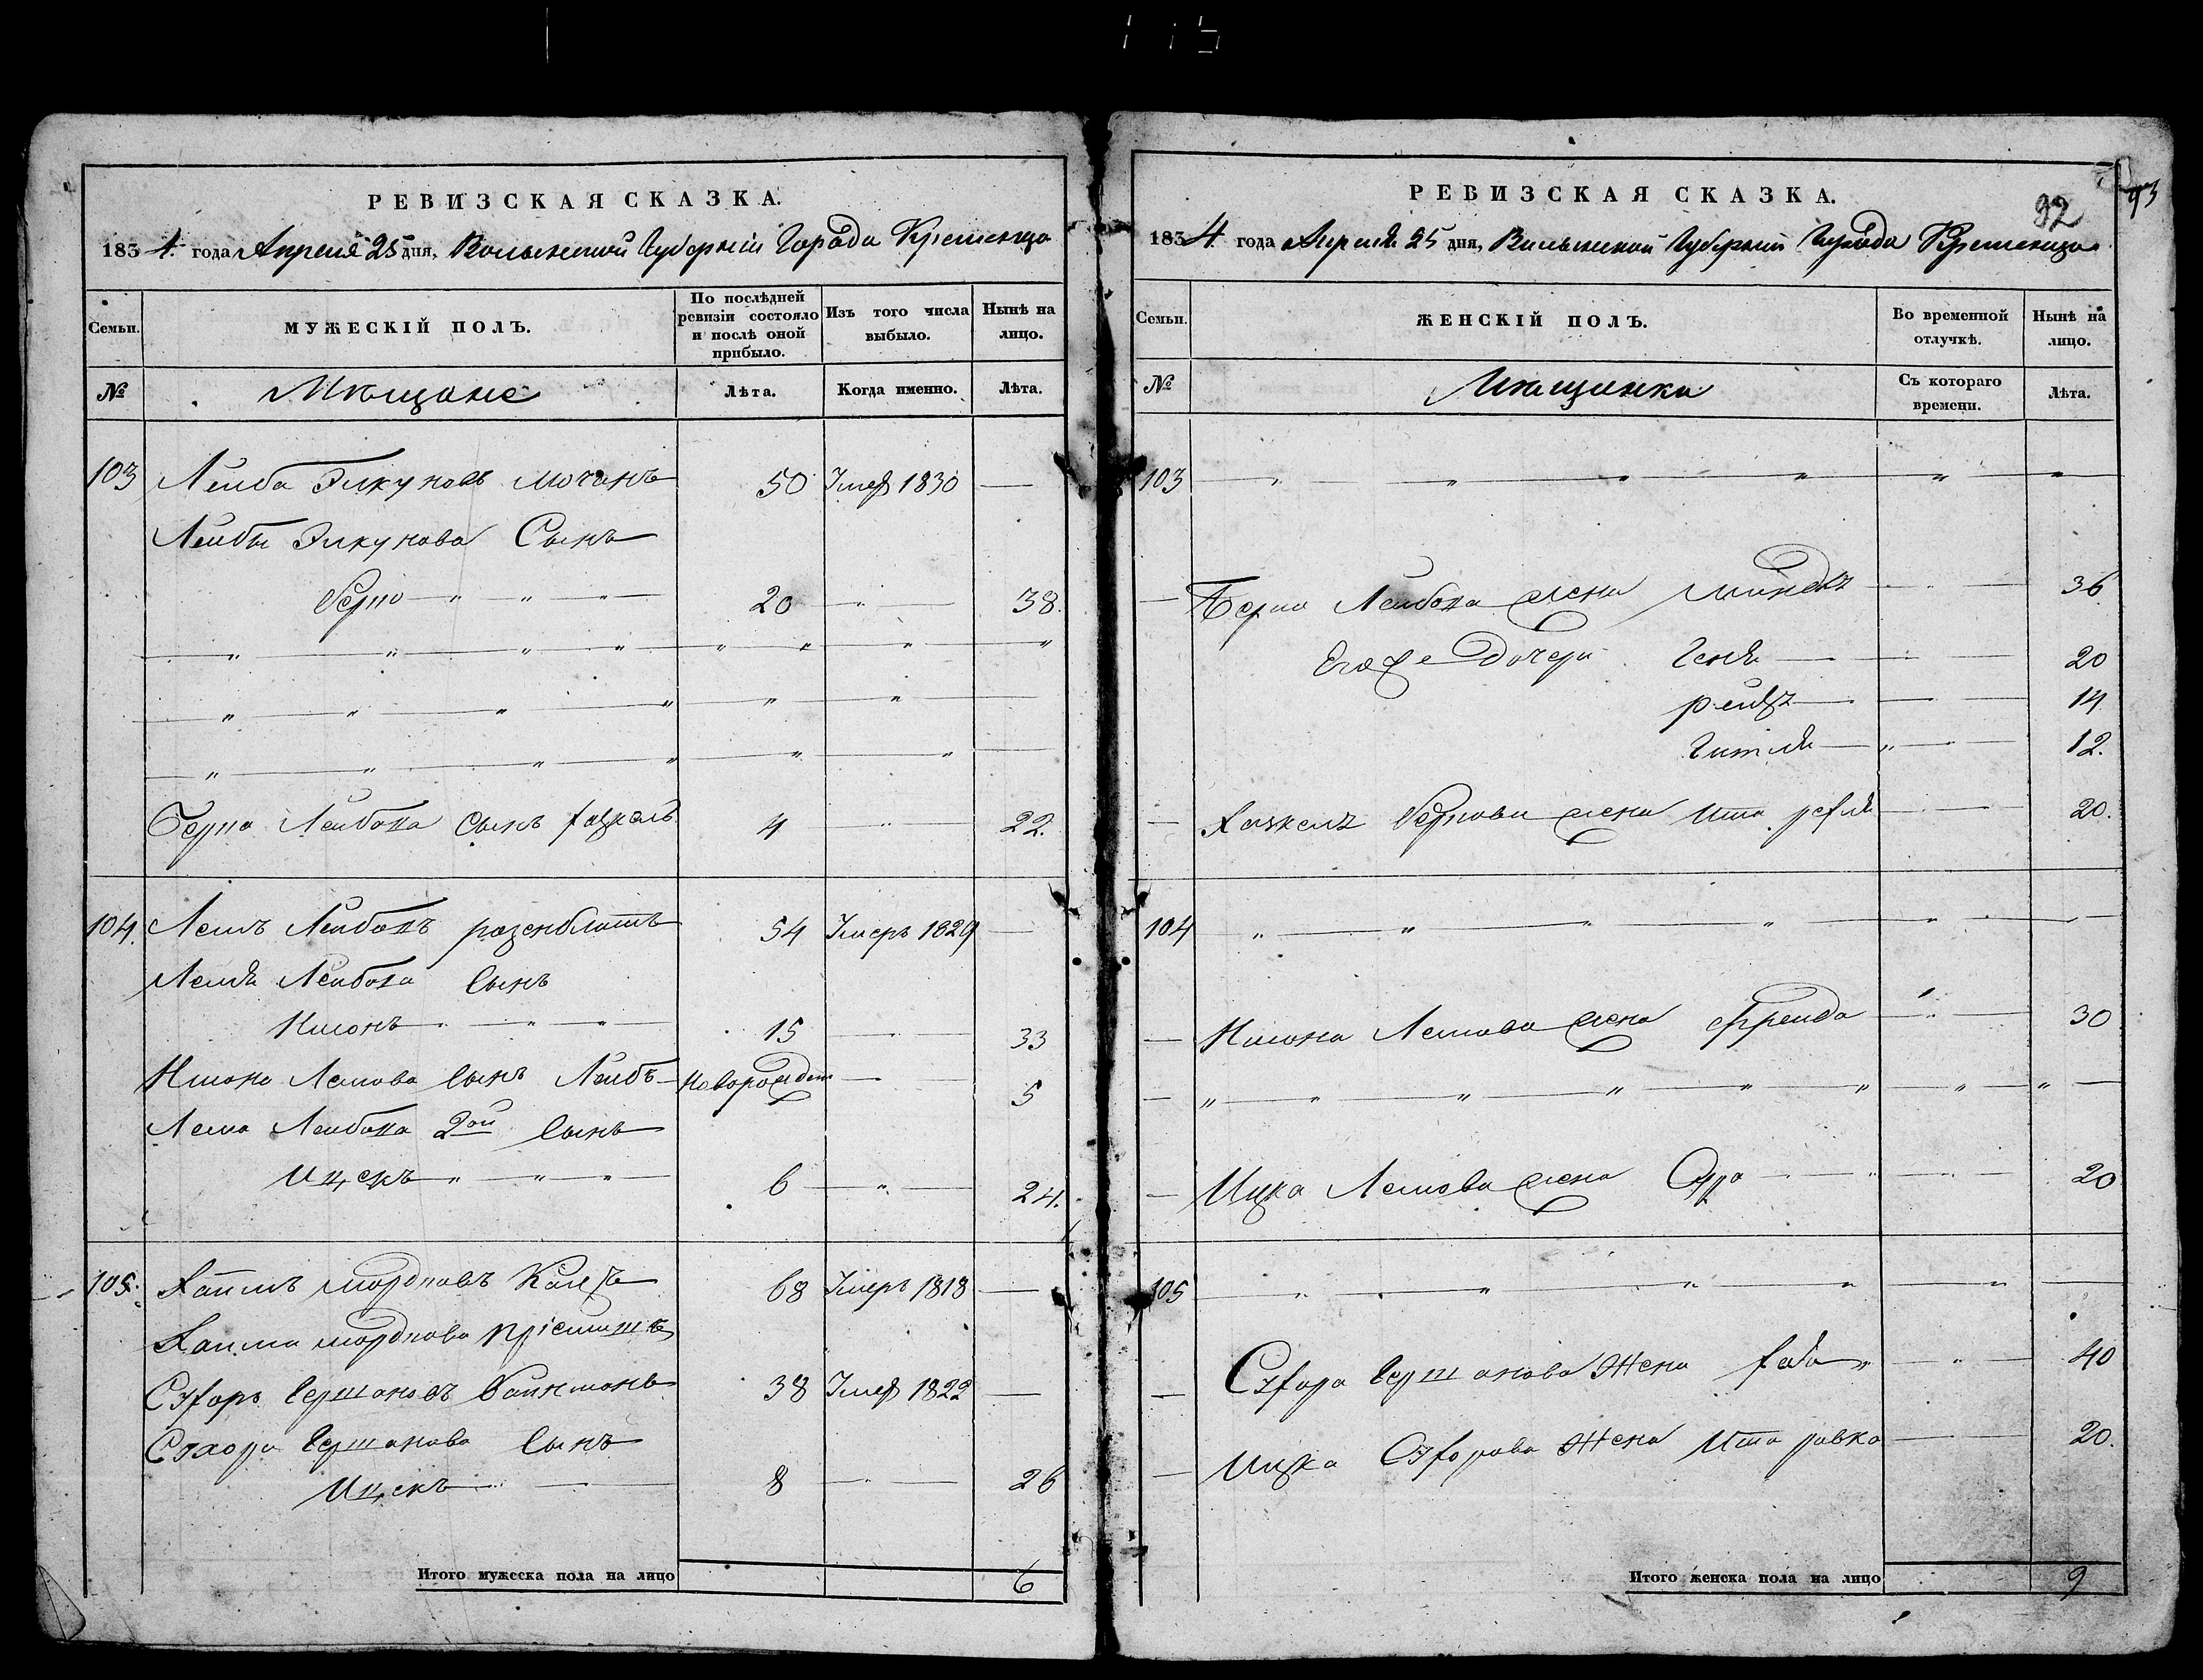 92
93
РЕВИЗСКАЯ СКАЗКА.
1834. года Апреля 25 дня, Волынской Губерніи Города Кременца
Семьи.
МУЖЕСКІЙ ПОЛЪ.
По послѣдней ревизіи состояло и послѣ оной прибыло.
Изъ того числа выбыло.
Нынѣ на лицо.
№
Мѣщане
Лѣта.
Когда именно.
Лѣта.
103 Лейба Элкуновъ 50 Умер 1830 —
Лейбы Элкунова Сынъ
Берко 20 38.
Берка Лейбова Сынъ Хацкель 4 22.
104. Лемъ Лейбовъ розенблатъ 54 Умеръ 1829 —
Лейбова Сынъ
15 33
Лемова Сынъ Лейбъ Новорожден 5
Лема Лейбова 2ой Сынъ
Ицекъ 6 24.
105. Хаимъ мордковъ 68 Умеръ 1818 —
Хаима мордкова
Сухоръ Гершоновъ 38 Умер 1822 —
Сухора Гершонова Сынъ
Ицекъ 8 26
Итого мужеска пола на лицо 6
РЕВИЗСКАЯ СКАЗКА.
1834 года Апреля 25 дня, Волынской Губерніи Города Кременца
Семьи.
ЖЕНСКІЙ ПОЛЪ.
Во временной отлучкѣ.
Нынѣ на лицо.
№
Мѣщанки
Съ котораго времени.
Лѣта.
103
Берка Лейбова жена 36
Его же Дочери Геня 20
14
Гитля 12.
Хацкель Беркова жена Ита 20.
104
Лемова жена Фрейда 30
Ицка Лемова жена 20
105
Сухора Гершонова Жена 40
Ицка Сухорова Жена Ита ривка 20.
Итого женска пола на лицо 9